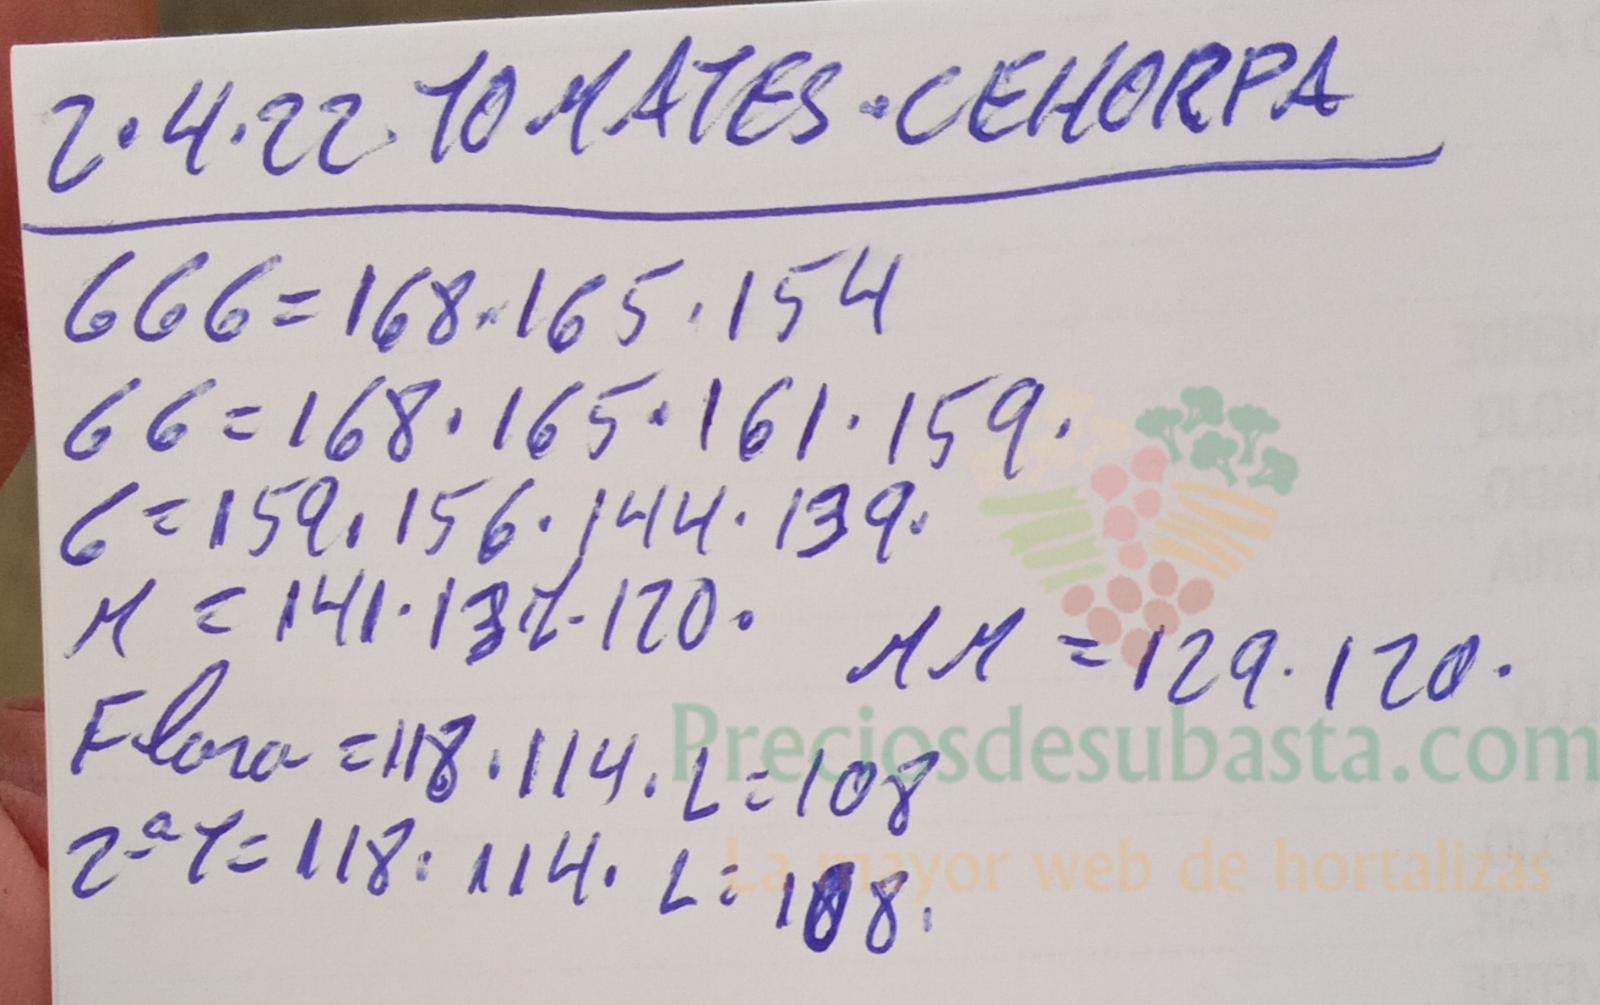 2.4.22. TOMATES.CEHORPA
GGG=168.165.154
GG=168.165.161.159.
G=159.156.144.139.
M=141.137.120. MM=129.120.
Flora=118.114. L=108
2ªT=118. 114. L=108.
Preciosdesubasta.com
La mayor web de hortalizas